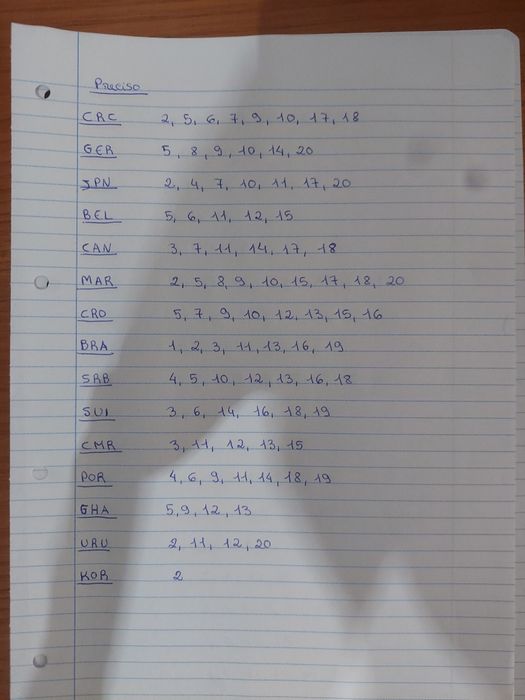 Preciso
CRC 2, 5, 6, 7, 9, 10, 17, 18
GER 5, 8, 9, 10, 14, 20
JPN 2, 4, 7, 10, 11, 17, 20
BEL 5, 6, 11, 12, 15
CAN 3, 7, 11, 14, 17, 18
MAR 2, 5, 8, 9, 10, 15, 17, 18, 20
CRO 5, 7, 9, 10, 12, 13, 15, 16
BRA 1, 2, 3, 11, 13, 16, 19
SRB 4, 5, 10, 12, 13, 16, 18
SUI 3, 6, 14, 16, 18, 19
CMR 3, 11, 12, 13, 15
POR 4, 6, 9, 11, 14, 18, 19
GHA 5, 9, 12, 13
URU 2, 11, 12, 20
KOR 2